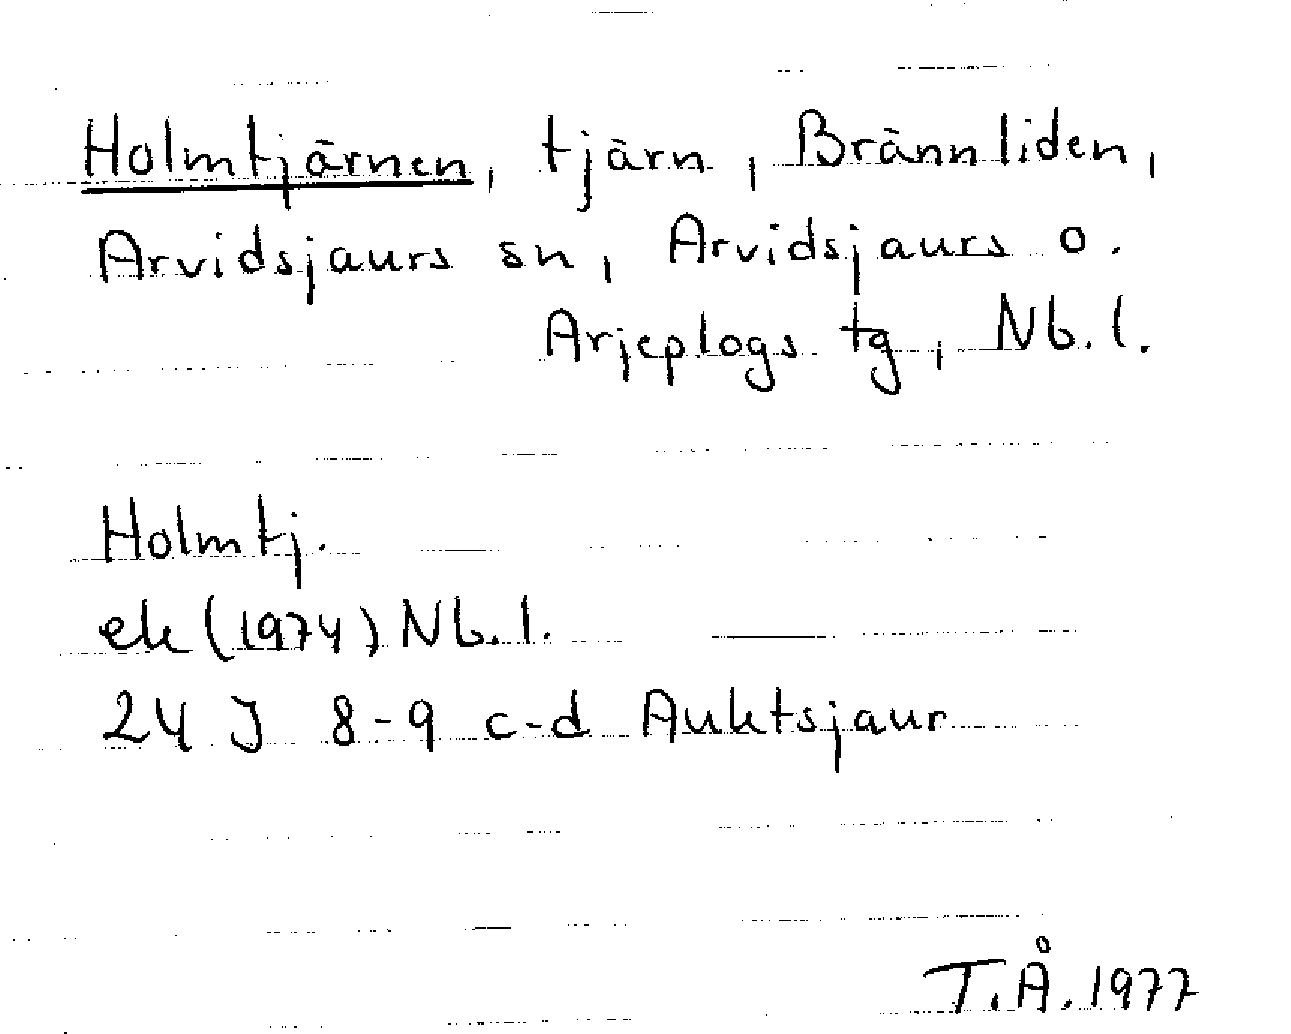 Holmtjärnen, tjärn, Brännliden,
Arvidsjaurs sn, Arvidsjaurs o.
Arjeplogs tg, Nb.l.
Holmtj.
ek (1974) Nb.l.
24 J 8-9 c-d Auktsjaur
T.Å. 1977